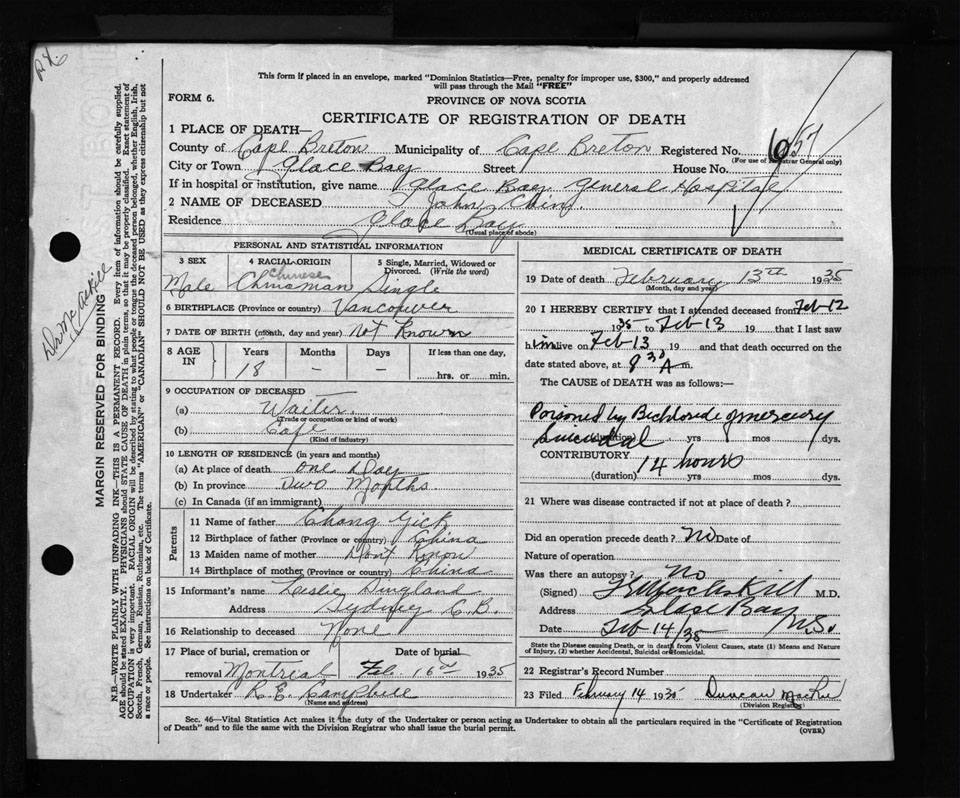 This form if placed in an envelope, marked "Dominion Statistics—Free, penalty for improper use, $300," and properly addressed
will pass through the Mail "FREE"
FORM 6.
PROVINCE OF NOVA SCOTIA
CERTIFICATE OF REGISTRATION OF DEATH
1 PLACE OF DEATH—
County of Cape Breton Municipality of Cape Breton Registered No. 657
(For use of Registrar General only)
City or Town Glace Bay Street House No.
If in hospital or institution, give name Glace Bay General Hospital
2 NAME OF DECEASED John Chin
Residence Glace Bay
(Usual place of abode)
PERSONAL AND STATISTICAL INFORMATION
3 SEX 4 RACIAL ORIGIN 5 Single, Married, Widowed or Divorced. (Write the word)
Chinese
Male Chinaman Single
6 BIRTHPLACE (Province or country) Vancouver
7 DATE OF BIRTH (month, day and year) Not Known
8 AGE IN Years Months Days If less than one day,
18 – – hrs. or min.
9 OCCUPATION OF DECEASED
(a) Waiter
(Trade or occupation or kind of work)
(b) Cafe
(Kind of industry)
10 LENGTH OF RESIDENCE (in years and months)
(a) At place of death One Day
(b) In province Two Months
(c) In Canada (if an immigrant)
Parents
11 Name of father Chong Gick
12 Birthplace of father (Province or country) China
13 Maiden name of mother Dont Know
14 Birthplace of mother (Province or country) China
15 Informant's name Leslie Dingland
Address Sydney C.B.
16 Relationship to deceased None
17 Place of burial, cremation or removal Date of burial
Montrial Feb. 16th 1935
18 Undertaker R.E. Campbell
(Name and address)
MEDICAL CERTIFICATE OF DEATH
19 Date of death February 13th 1935
(Month, day and year)
20 I HEREBY CERTIFY that I attended deceased from Feb-12
1935 to Feb-13 19 that I last saw
him alive on Feb-13 19 and that death occurred on the
date stated above, at 8 30 A m.
The CAUSE of DEATH was as follows:
Poisoned by Bichloride of mercury
Suicidal (duration) yrs mos dys.
CONTRIBUTORY 14 hours
(duration) yrs mos dys.
21 Where was disease contracted if not at place of death?
Did an operation precede death? No Date of
Nature of operation
Was there an autopsy? No
(Signed) M.D.
Address Glace Bay N.S.
Date Feb 14/35
State the Disease causing Death, or in death from Violent Causes, state (1) Means and Nature of Injury, (2) whether Accidental, Suicidal or Homicidal.
22 Registrar's Record Number
23 Filed February 14 1935 Duncan
(Division Registrar)
Sec. 46—Vital Statistics Act makes it the duty of the Undertaker or person acting as Undertaker to obtain all the particulars required in the "Certificate of Registration
of Death" and to file the same with the Division Registrar who shall issue the burial permit.
(OVER)
Dr McAskill
MARGIN RESERVED FOR BINDING
N.B.—WRITE PLAINLY WITH UNFADING INK—THIS IS A PERMANENT RECORD. Every item of information should be carefully supplied.
AGE should be stated EXACTLY. PHYSICIANS should STATE CAUSE OF DEATH in plain terms, so that it may be properly classified. Exact statement of
OCCUPATION is very important. RACIAL ORIGIN will be described by stating to what people or tongue the deceased person belonged, whether English, Irish,
Scotch, French, German, Russian, Ruthenian, etc. The terms "AMERICAN" or "CANADIAN" SHOULD NOT BE USED as they express citizenship but not
a race or people. See instructions on back of Certificate.